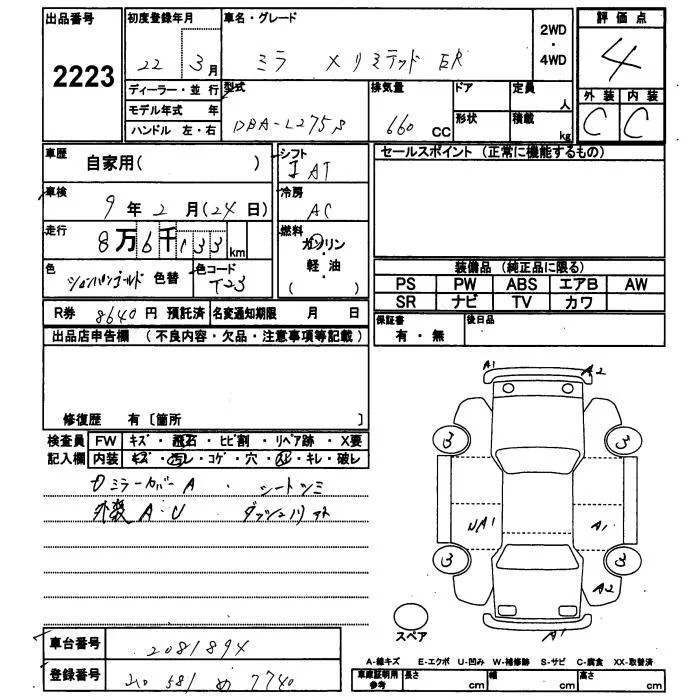 出品番号
2223
初度登録年月
22 3月
車名・グレード
ミラ X リミテッド
2WD
・
4WD
評価点
4
外装 内装
C C
ディーラー・並行
モデル年式 年
ハンドル 左・右
型式
DBA-L275S
排気量
660 CC
ドア
形状
定員
人
積載
kg
車歴
自家用( )
シフト
AT
車検
9年2月(24日)
冷房
AC
走行
8万6千133km
燃料
ガソリン
軽・油
( )
色
シャンパンゴールド 色替
色コード
T23
R券 8640円 預託済
名変通知期限 月 日
セールスポイント (正常に機能するもの)
装備品 (純正品に限る)
PS PW ABS エアB AW
SR ナビ TV カワ
保証書
有・無
後日品
出品店申告欄 (不良内容・欠品・注意事項等記載)
修復歴 有〔箇所 〕
検査員
記入欄
FW キズ・飛石・ヒビ割・リペア跡・X要
内装 キズ・汚レ・コゲ・穴・スレ・キレ・破レ
ミラーカバー A ・ シートシミ
外装 A・U
A1 A2
3 3
A1
3 3
A2
A1
スペア
車台番号
2081894
登録番号
581 め 7740
A-線キズ E-エクボ U-凹み W-補修跡 S-サビ C-腐食 XX-取替済
車庫証明用
参考
長さ cm 幅 cm 高さ cm